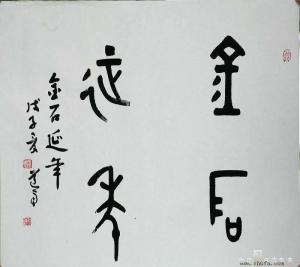 金石
延年
金石延年
戊子夏